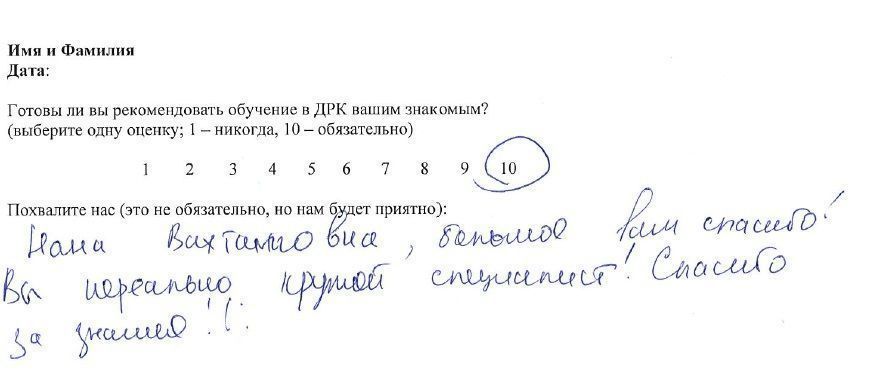 Имя и Фамилия
Дата:
Готовы ли вы рекомендовать обучение в ДРК вашим знакомым?
(выберите одну оценку; 1 – никогда, 10 – обязательно)
1 2 3 4 5 6 7 8 9 10
Похвалите нас (это не обязательно, но нам будет приятно):
Нана Вахтанговна, большое Вам спасибо!
Вы нереально крутой специалист! Спасибо
за знания!!!